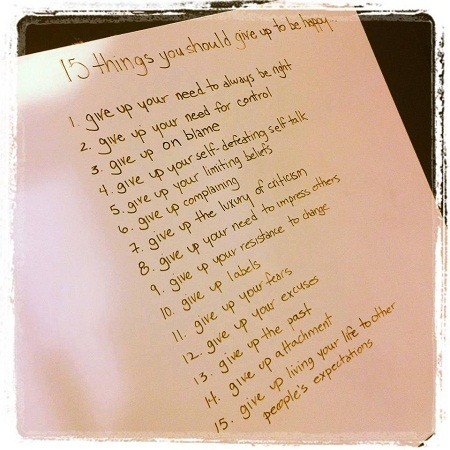 15 things you should give up to be happy.
1. give up your need to always be right
2. give up your need for control
3. give up on blame
4. give up your self-defeating self talk
5. give up your limiting beliefs
6. give up complaining
7. give up the luxury of criticism
8. give up your need to impress others
9. give up your resistance to change
10. give up labels
11. give up your fears
12. give up your excuses
13. give up the past
14. give up attachment
15. give up living your life to other
people's expectations